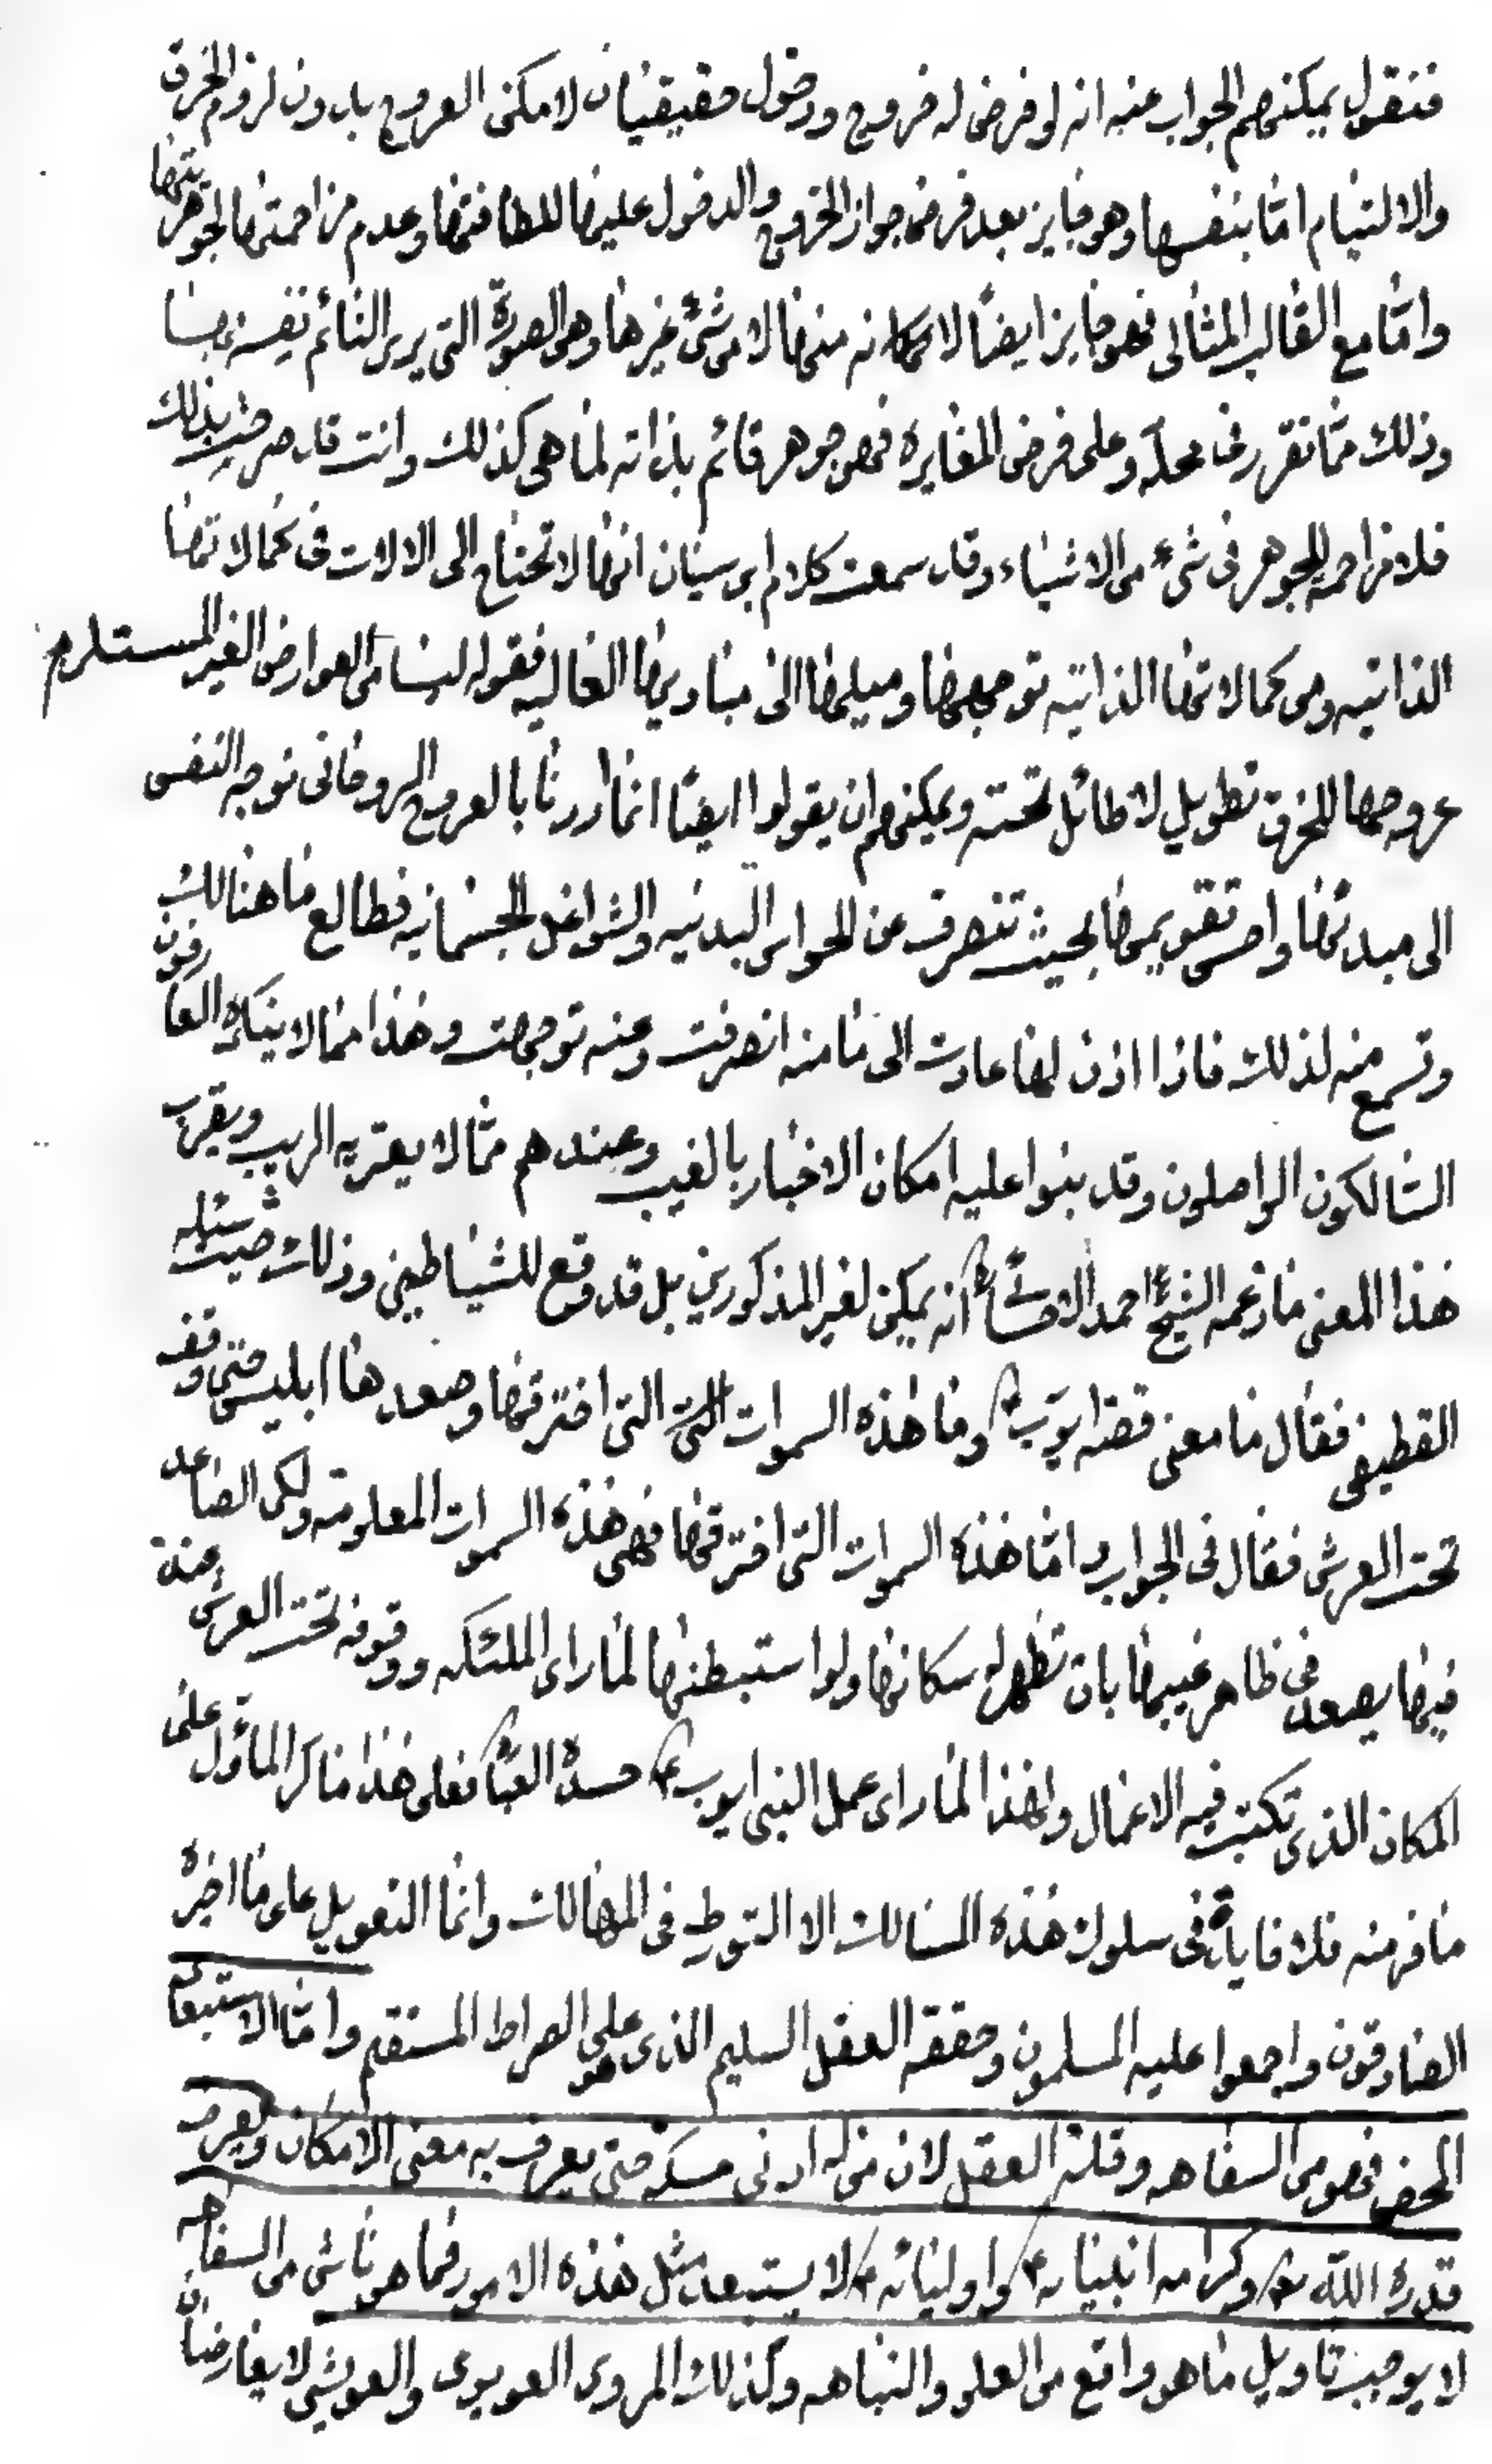 فنقول يمكنهم الجواب عنه انه لو فرض له خروج ودخول حقيقيان لامكن العروج بدون لزوم الخرق
والالتيام امّا بنفسها وهو جايز بعد فرض جواز الخروج والدخول عليها للطافتها وعدم مزاحمتها لجوهريتها
وامّا مع القالب المثالى فهو جايز ايضًا لامكانه منها لا من شئ غيرها وهى الصورة التى يرى النائم نفسه بها
وذلك ممّا تقرر فى محله وعلى فرض المغايره فهو جوهر قائم بذاته كما هى كذلك وانت قد صرحت بذلك
فلا مزاحمه للجوهر فى شىء من الاشياء وقد سمعت كلام ابن سينا من انها لا تحتاج الى الالات فى كمالاتها
الذاتيه ومن كمالاتها الذاتيه توجهها وميلها الى مباديها العاليه فقوله ليسا من العوارض الغير المستلزم
عروجها للخرق تطويل لا طائل تحته ويمكنهم ان يقولوا ايضًا انما اردنا بالعروج الروحانى توجه النفس
الى مبدئها واحسن تقويمها بحيث تنصرف عن الحواس البدنيه والشواغل الجسمانيه فتطالع ما هنالك
وتسمع منه لذلك فاذا اذن لها عادت الى ما منه انصرفت وعنه توجهت وهذا مما لا ينكره العارفون
السالكون الواصلون وقد بنوا عليه امكان الاخبار بالغيب وعندهم ممّا لا يعتريه الريب ويقرب
هذا المعنى ما زعمه الشيخ احمد الاحسائى انه يمكن لغير المذكورين بل قد وقع للشياطين وذلك حيث سئله
القطيفى فقال ما معنى قصة ايوب ع وما هذه السموات التى اخترقها وصعدها ابليس حتى وقف
تحت العرش فقال فى الجواب وامّا هذه السموات التى اخترقها فهى هذه السموات المعلومة ولكن الصاعد
فيها يصعد فى ظاهر غيبها بان تظهر له سكانها ولو استبطنها لما راى الملئكه ووقوفه تحت العرش عند
المكان الذى تكتب فيه الاعمال ولهذا لما راى عمل النبى ايوب ع حسده فعلى هذا ما كر المأوّل على
ما فر منه فلا فايدة فى سلوك هذه المسالك الا التورط فى المهالك وانما التعويل على ما اخبره
الصادقون واجمعوا عليه المسلمون وحققه العقل السليم الذى هو على الصراط المستقيم وامّا الاستبعاد
المحض فهو من السفاهه وقلة العقل لان من له ادنى مسكه حتى يعرف به معنى الامكان ويعرف
قدرة اللّه تع وكرامه انبيائه ع واوليائه ع لا يستبعد مثل هذه الامور فما هو ناشى من السفاهه
لا يوجب تاويل ما هو واقع من العلو والنباهه وكذلك المروى العويوى والعويشى لا يعارضان